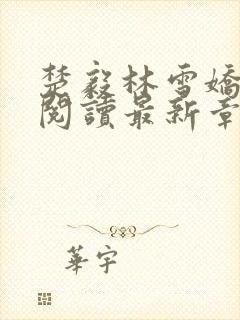 楚毅林雪嬌
閱讀最新章
華宇